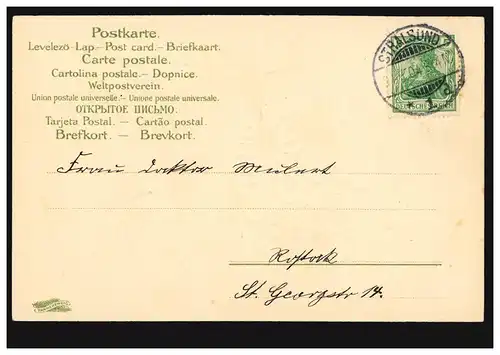 Postkarte.
Levelező-Lap.–Post card.–Briefkaart.
Carte postale.
Cartolina postale.–Dopnice.
Weltpostverein.
Union postale universelle.–Unione postale universale.
ОТКРЫТОЕ ПИСЬМО.
Tarjeta Postal. – Cartão postal.
Brefkort. – Brevkort.
STRALSUND
DEUTSCHES REICH
Frau Doktor Mulert
Rostock
St. Georgstr 14.